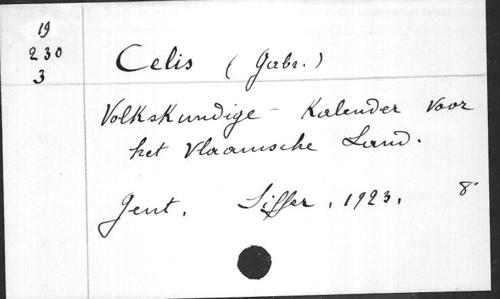 19
230
3
Celis (Gabr.)
Volkskundige - Kalender voor
het Vlaamsche Land.
Gent, Siffer, 1923, 8°